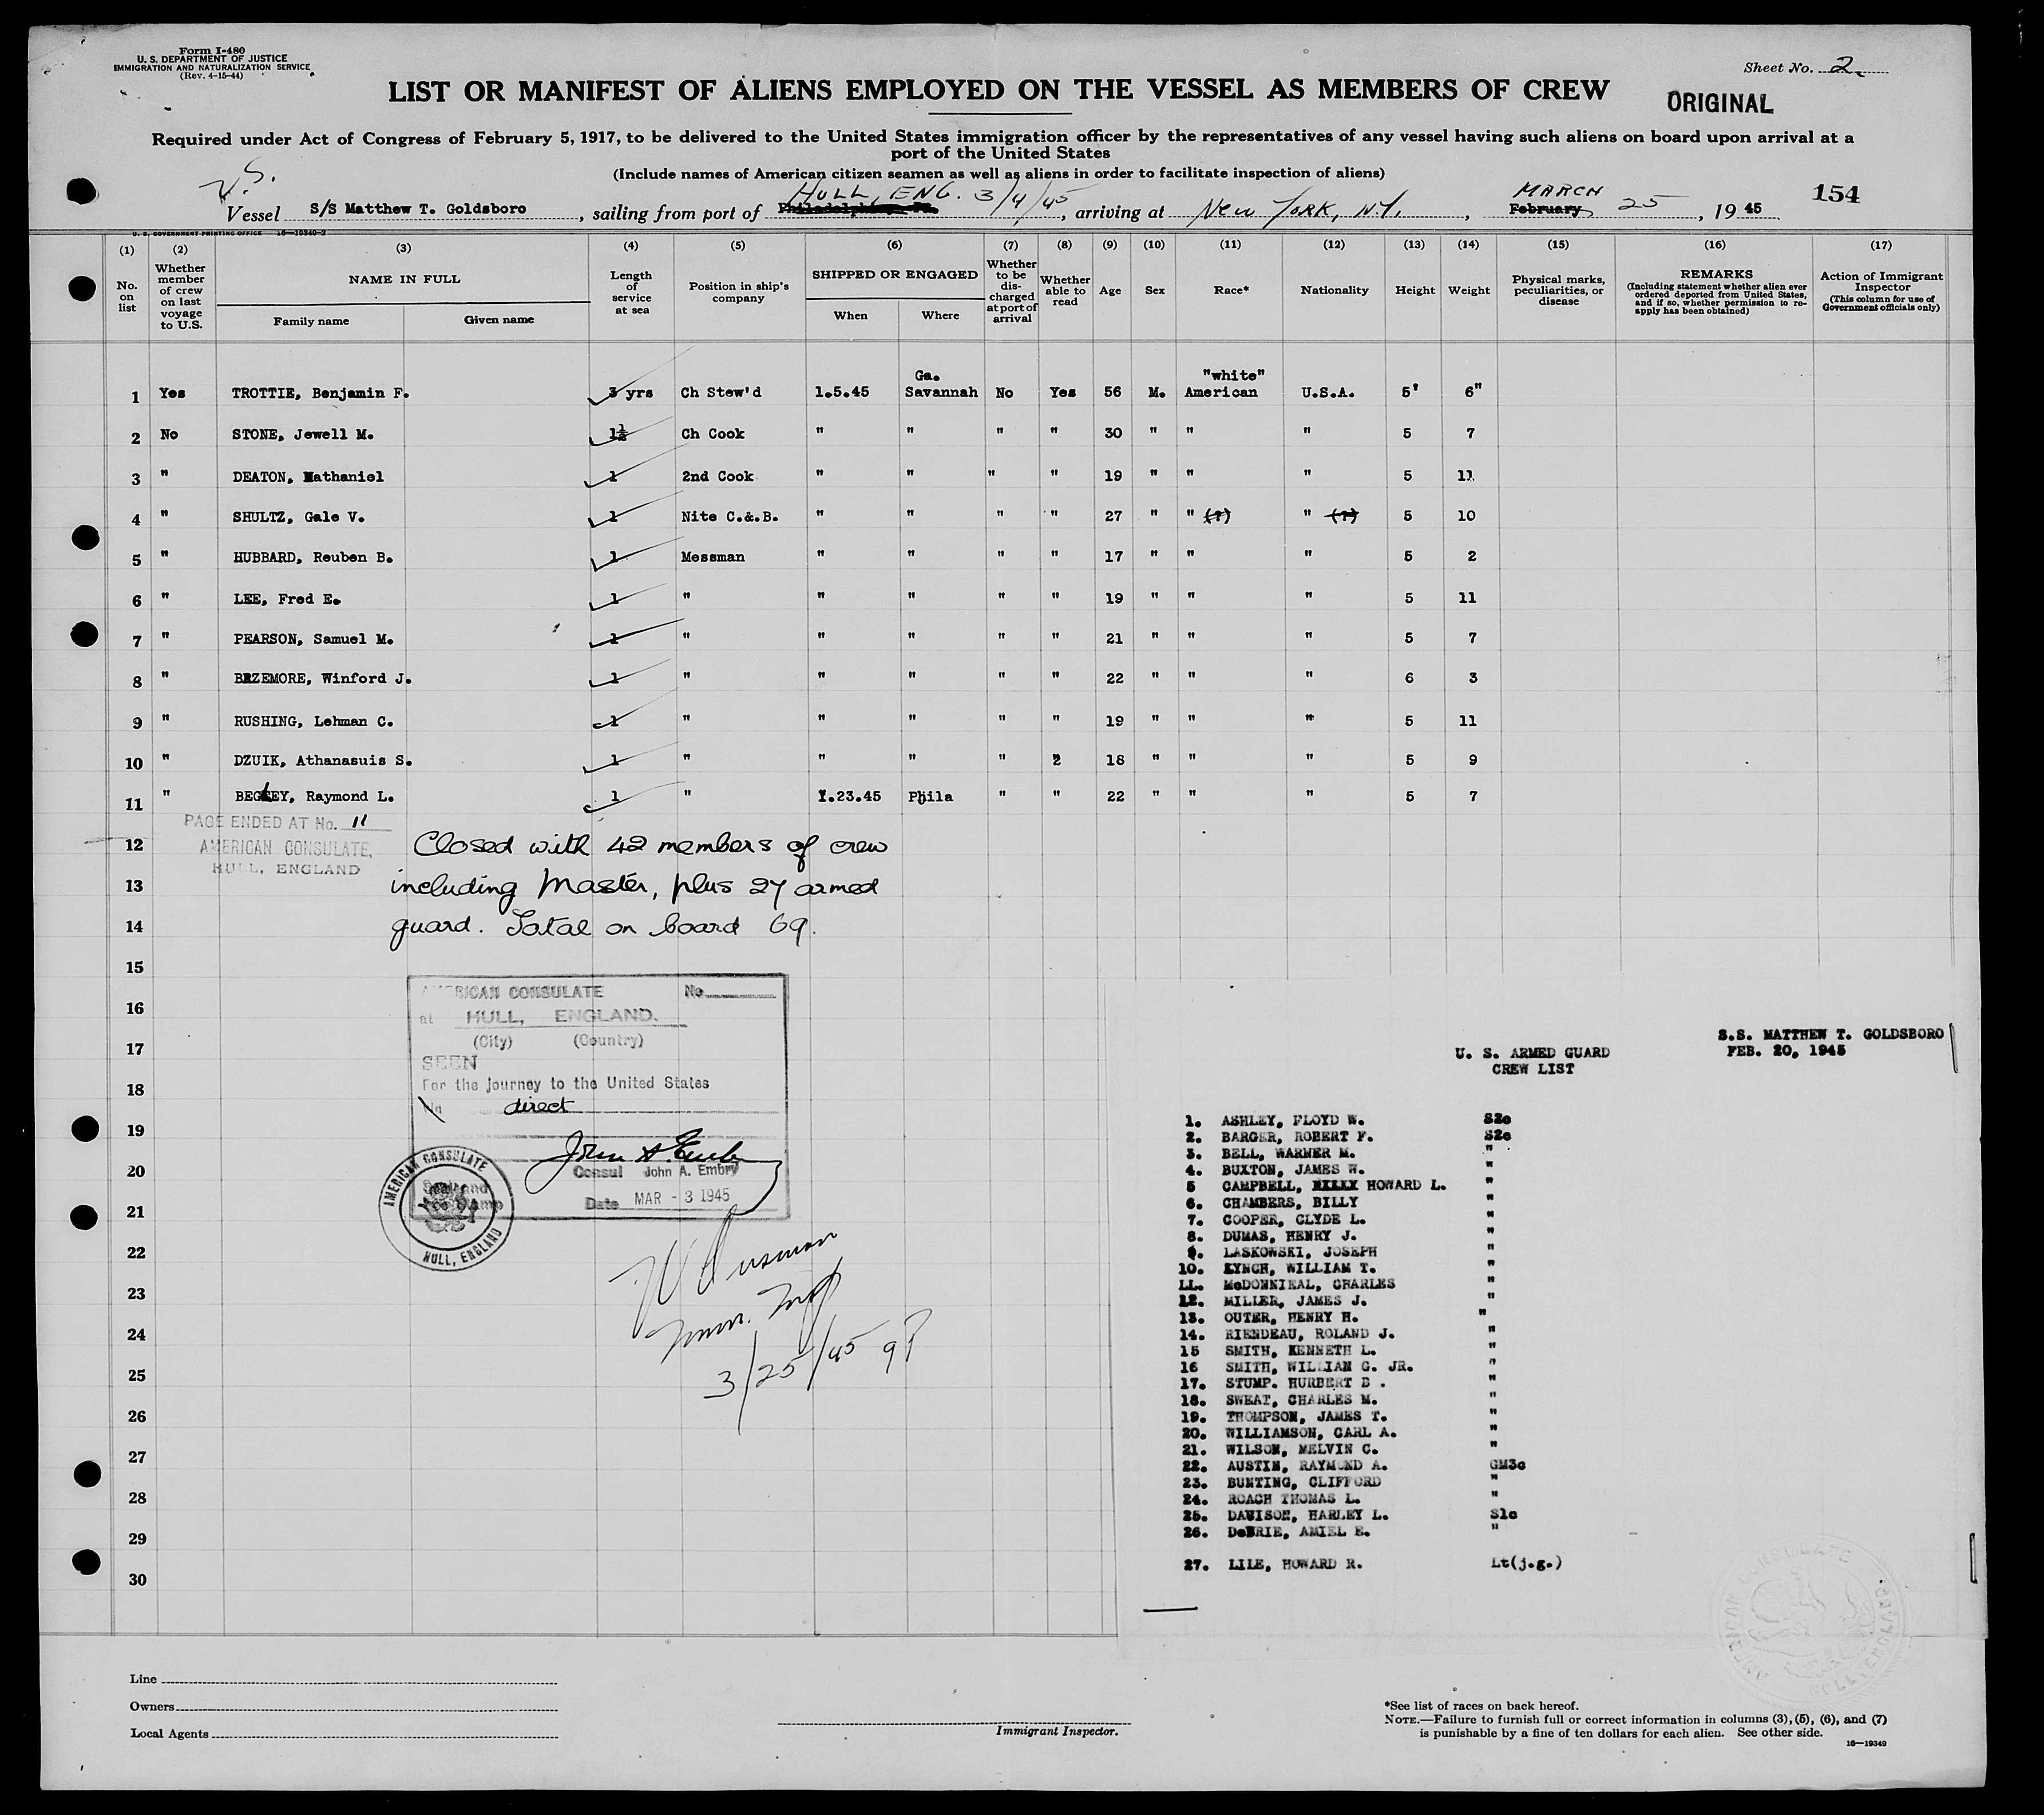 Form I-480
U. S. DEPARTMENT OF JUSTICE
IMMIGRATION AND NATURALIZATION SERVICE
(Rev. 4-15-44)
Sheet No. 2
LIST OR MANIFEST OF ALIENS EMPLOYED ON THE VESSEL AS MEMBERS OF CREW
ORIGINAL
Required under Act of Congress of February 5, 1917, to be delivered to the United States immigration officer by the representatives of any vessel having such aliens on board upon arrival at a
port of the United States
(Include names of American citizen seamen as well as aliens in order to facilitate inspection of aliens)
U.S.
HULL, ENG. 3/4/45
MARCH
154
Vessel S/S Matthew T. Goldsboro, sailing from port of Philadelphia, Pa., arriving at New York, N.Y., February 25, 1945
U. S. GOVERNMENT PRINTING OFFICE 16—19349-2
(1) (2) (3) (4) (5) (6) (7) (8) (9) (10) (11) (12) (13) (14) (15) (16) (17)
No. on list
Whether member of crew on last voyage to U.S.
NAME IN FULL
Family name Given name
Length of service at sea
Position in ship's company
SHIPPED OR ENGAGED
When Where
Whether to be discharged at port of arrival
Whether able to read
Age
Sex
Race*
Nationality
Height
Weight
Physical marks, peculiarities, or disease
REMARKS
(Including statement whether alien ever ordered deported from United States, and if so, whether permission to reapply has been obtained)
Action of Immigrant Inspector
(This column for use of Government officials only)
Ga. "white"
1 Yes TROTTIE, Benjamin F. 3 yrs Ch Stew'd 1.5.45 Savannah No Yes 56 M. American U.S.A. 5' 6"
2 No STONE, Jewell M. 1½ Ch Cook " " " " 30 " " " 5 7
3 " DEATON, Nathaniel 1 2nd Cook " " " " 19 " " " 5 11
4 " SHULTZ, Gale V. 1 Nite C.&.B. " " " " 27 " " (?) " (?) 5 10
5 " HUBBARD, Reuben B. 1 Messman " " " " 17 " " " 5 2
6 " LEE, Fred E. 1 " " " " " 19 " " " 5 11
7 " PEARSON, Samuel M. 1 " " " " " 21 " " " 5 7
8 " BAZEMORE, Winford J. 1 " " " " " 22 " " " 6 3
9 " RUSHING, Lehman C. 1 " " " " " 19 " " " 5 11
10 " DZUIK, Athanasuis S. 1 " " " " 2 18 " " " 5 9
11 " BEGLEY, Raymond L. 1 " 1.23.45 Phila " " 22 " " " 5 7
PAGE ENDED AT No. 11
AMERICAN CONSULATE,
HULL, ENGLAND
12 Closed with 42 members of crew
13 including Master, plus 27 armed
14 guard. Total on board 69.
15
16
17
18
19
20
21
22
23
24
25
26
27
28
29
30
AMERICAN CONSULATE No
at HULL, ENGLAND.
(City) (Country)
SEEN
For the journey to the United States
direct
John A. Embry
Consul John A. Embry
Date MAR - 3 1945
Seal and
AMERICAN CONSULATE
HULL, ENGLAND
3/25/45
S.S. MATTHEW T. GOLDSBORO
FEB. 20, 1945
U. S. ARMED GUARD
CREW LIST
1. ASHLEY, FLOYD W. S2c
2. BARGER, ROBERT F. S2c
3. BELL, WARNER M. "
4. BUXTON, JAMES W. "
5 CAMPBELL, BILLY HOWARD L. "
6. CHAMBERS, BILLY "
7. COOPER, CLYDE L. "
8. DUMAS, HENRY J. "
9. LASKOWSKI, JOSEPH "
10. LYNCH, WILLIAM T. "
LL. McDONNIKAL, CHARLES "
12. MILLER, JAMES J. "
13. OUTER, HENRY H. "
14. RIENDEAU, ROLAND J. "
15 SMITH, KENNETH L. "
16 SMITH, WILLIAN G. JR. "
17. STUMP. HURBERT D . "
18. SWEAT, CHARLES M. "
19. THOMPSON, JAMES T. "
20. WILLIAMSON, CARL A. "
21. WILSON, MELVIN C. "
22. AUSTIN, RAYMOND A. GM3c
23. BUNTING, CLIFFORD "
24. ROACH THOMAS L. "
25. DAVISON, HARLEY L. S1c
26. DeBRIE, AMIEL E. "
27. LILE, HOWARD R. Lt(j.g.)
AMERICAN CONSULATE
HULL, ENGLAND
Line
Owners
Local Agents
Immigrant Inspector.
*See list of races on back hereof.
NOTE.—Failure to furnish full or correct information in columns (3), (5), (6), and (7)
is punishable by a fine of ten dollars for each alien. See other side.
16—19349